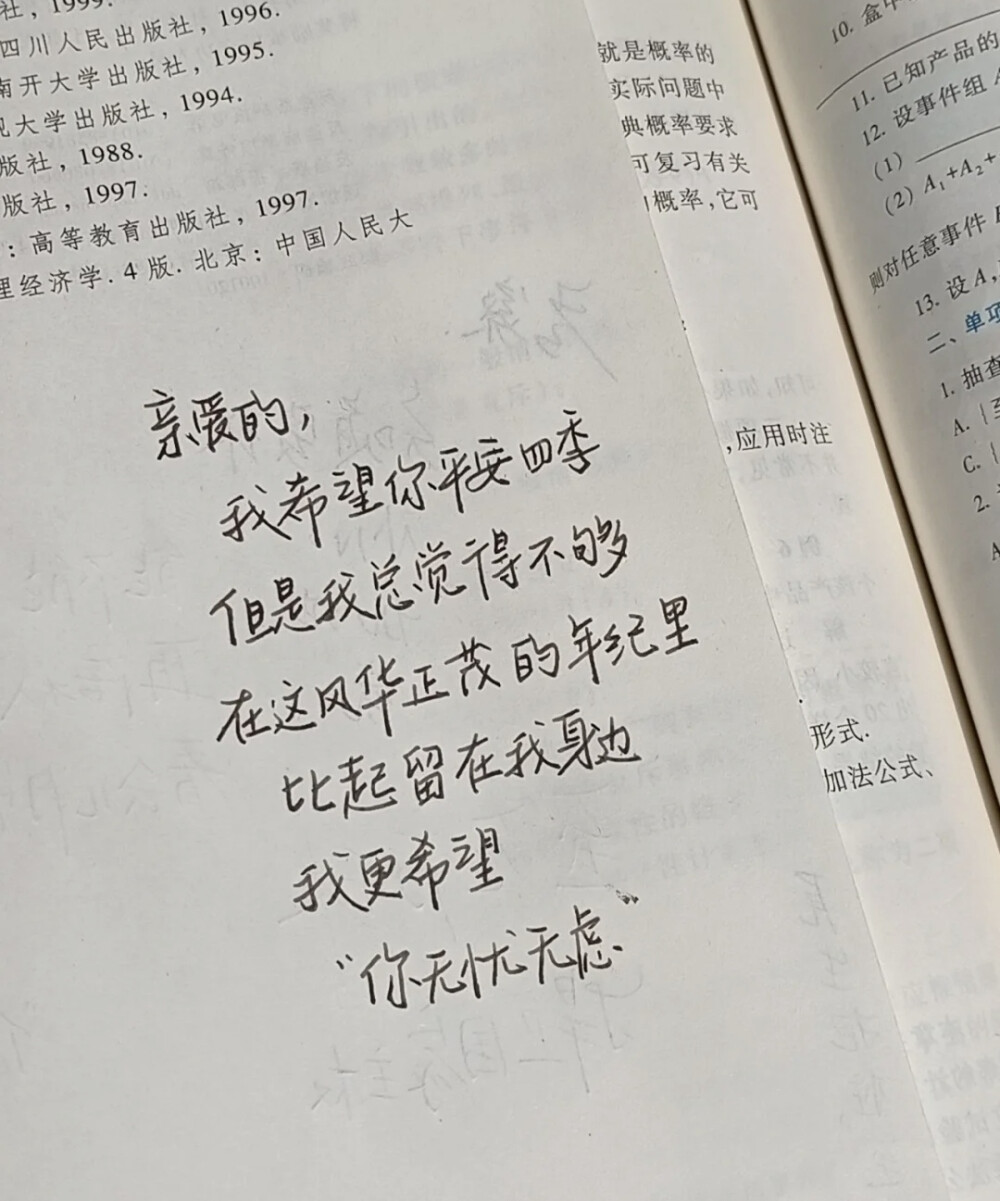 社，1999.
四川人民出版社，1996.
南开大学出版社，1995.
大学出版社，1994.
版社，1988.
版社，1997.
：高等教育出版社，1997.
理经济学. 4 版. 北京：中国人民大
亲爱的，
我希望你平安四季
但是我总觉得不够
在这风华正茂的年纪里
比起留在我身边
我更希望
“你无忧无虑”
就是概率的
实际问题中
典概率要求
可复习有关
概率，它可
，应用时注
形式.
加法公式、
10. 盒中
11. 已知产品的
12. 设事件组
(1)
(2) A₁+A₂+
则对任意事件
13. 设 A,
二、单项
1. 抽查
A. {至
C. {
2.
A